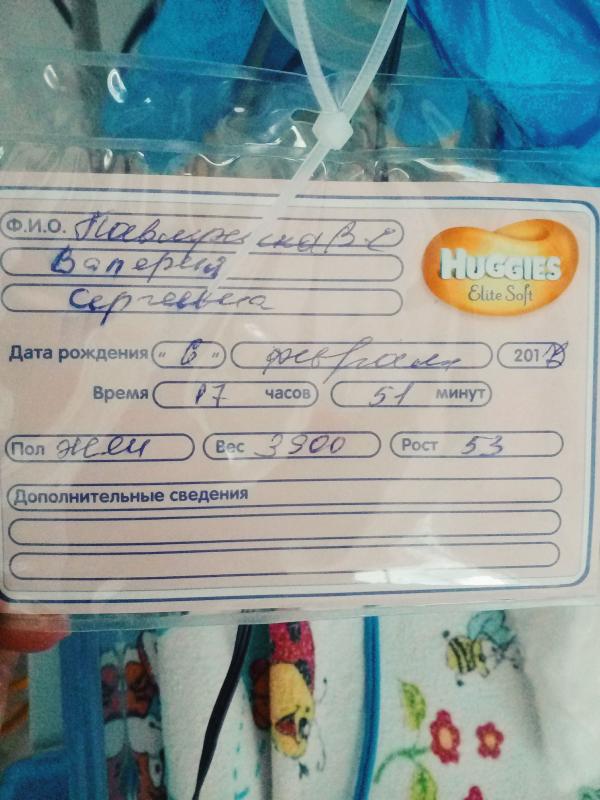 Ф.И.О.
Валерия
Сергеевна
HUGGIES
Elite Soft
Дата рождения " 6 " февраля 2018
Время 17 часов 51 минут
Пол жен Вес 3900 Рост 53
Дополнительные сведения